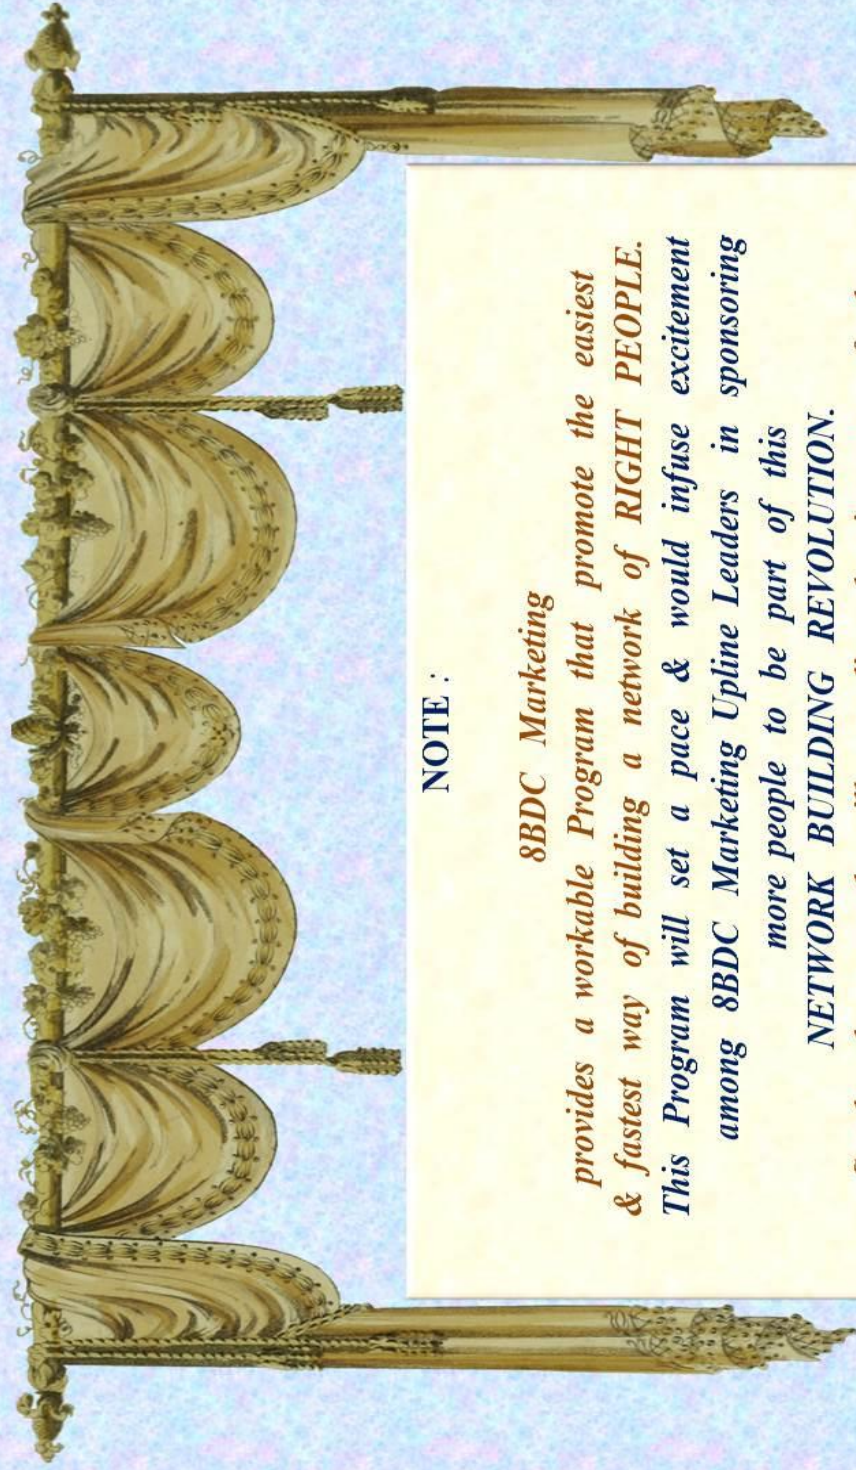 NOTE :
8BDC Marketing
provides a workable Program that promote the easiest
& fastest way of building a network of RIGHT PEOPLE.
This Program will set a pace & would infuse excitement
among 8BDC Marketing Upline Leaders in sponsoring
more people to be part of this
NETWORK BUILDING REVOLUTION.